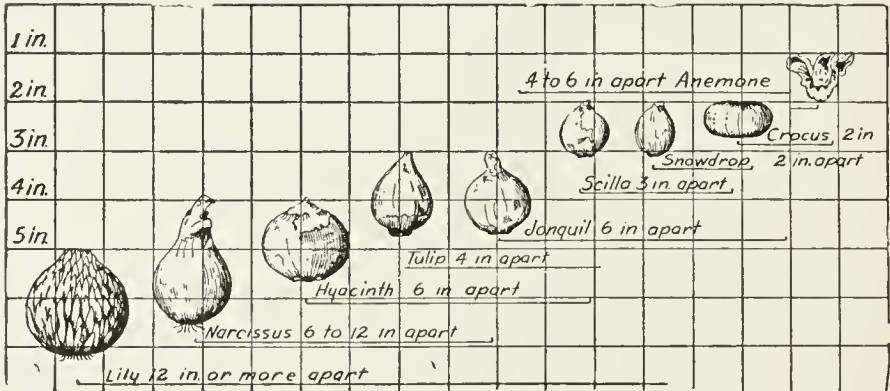 1 in.
2 in.
3 in.
4 in.
5 in.
4 to 6 in apart Anemone
Crocus 2 in
Snowdrop 2 in. apart
Scilla 3 in. apart
Jonquil 6 in apart
Tulip 4 in apart
Hyacinth 6 in apart
Narcissus 6 to 12 in apart
Lily 12 in. or more apart